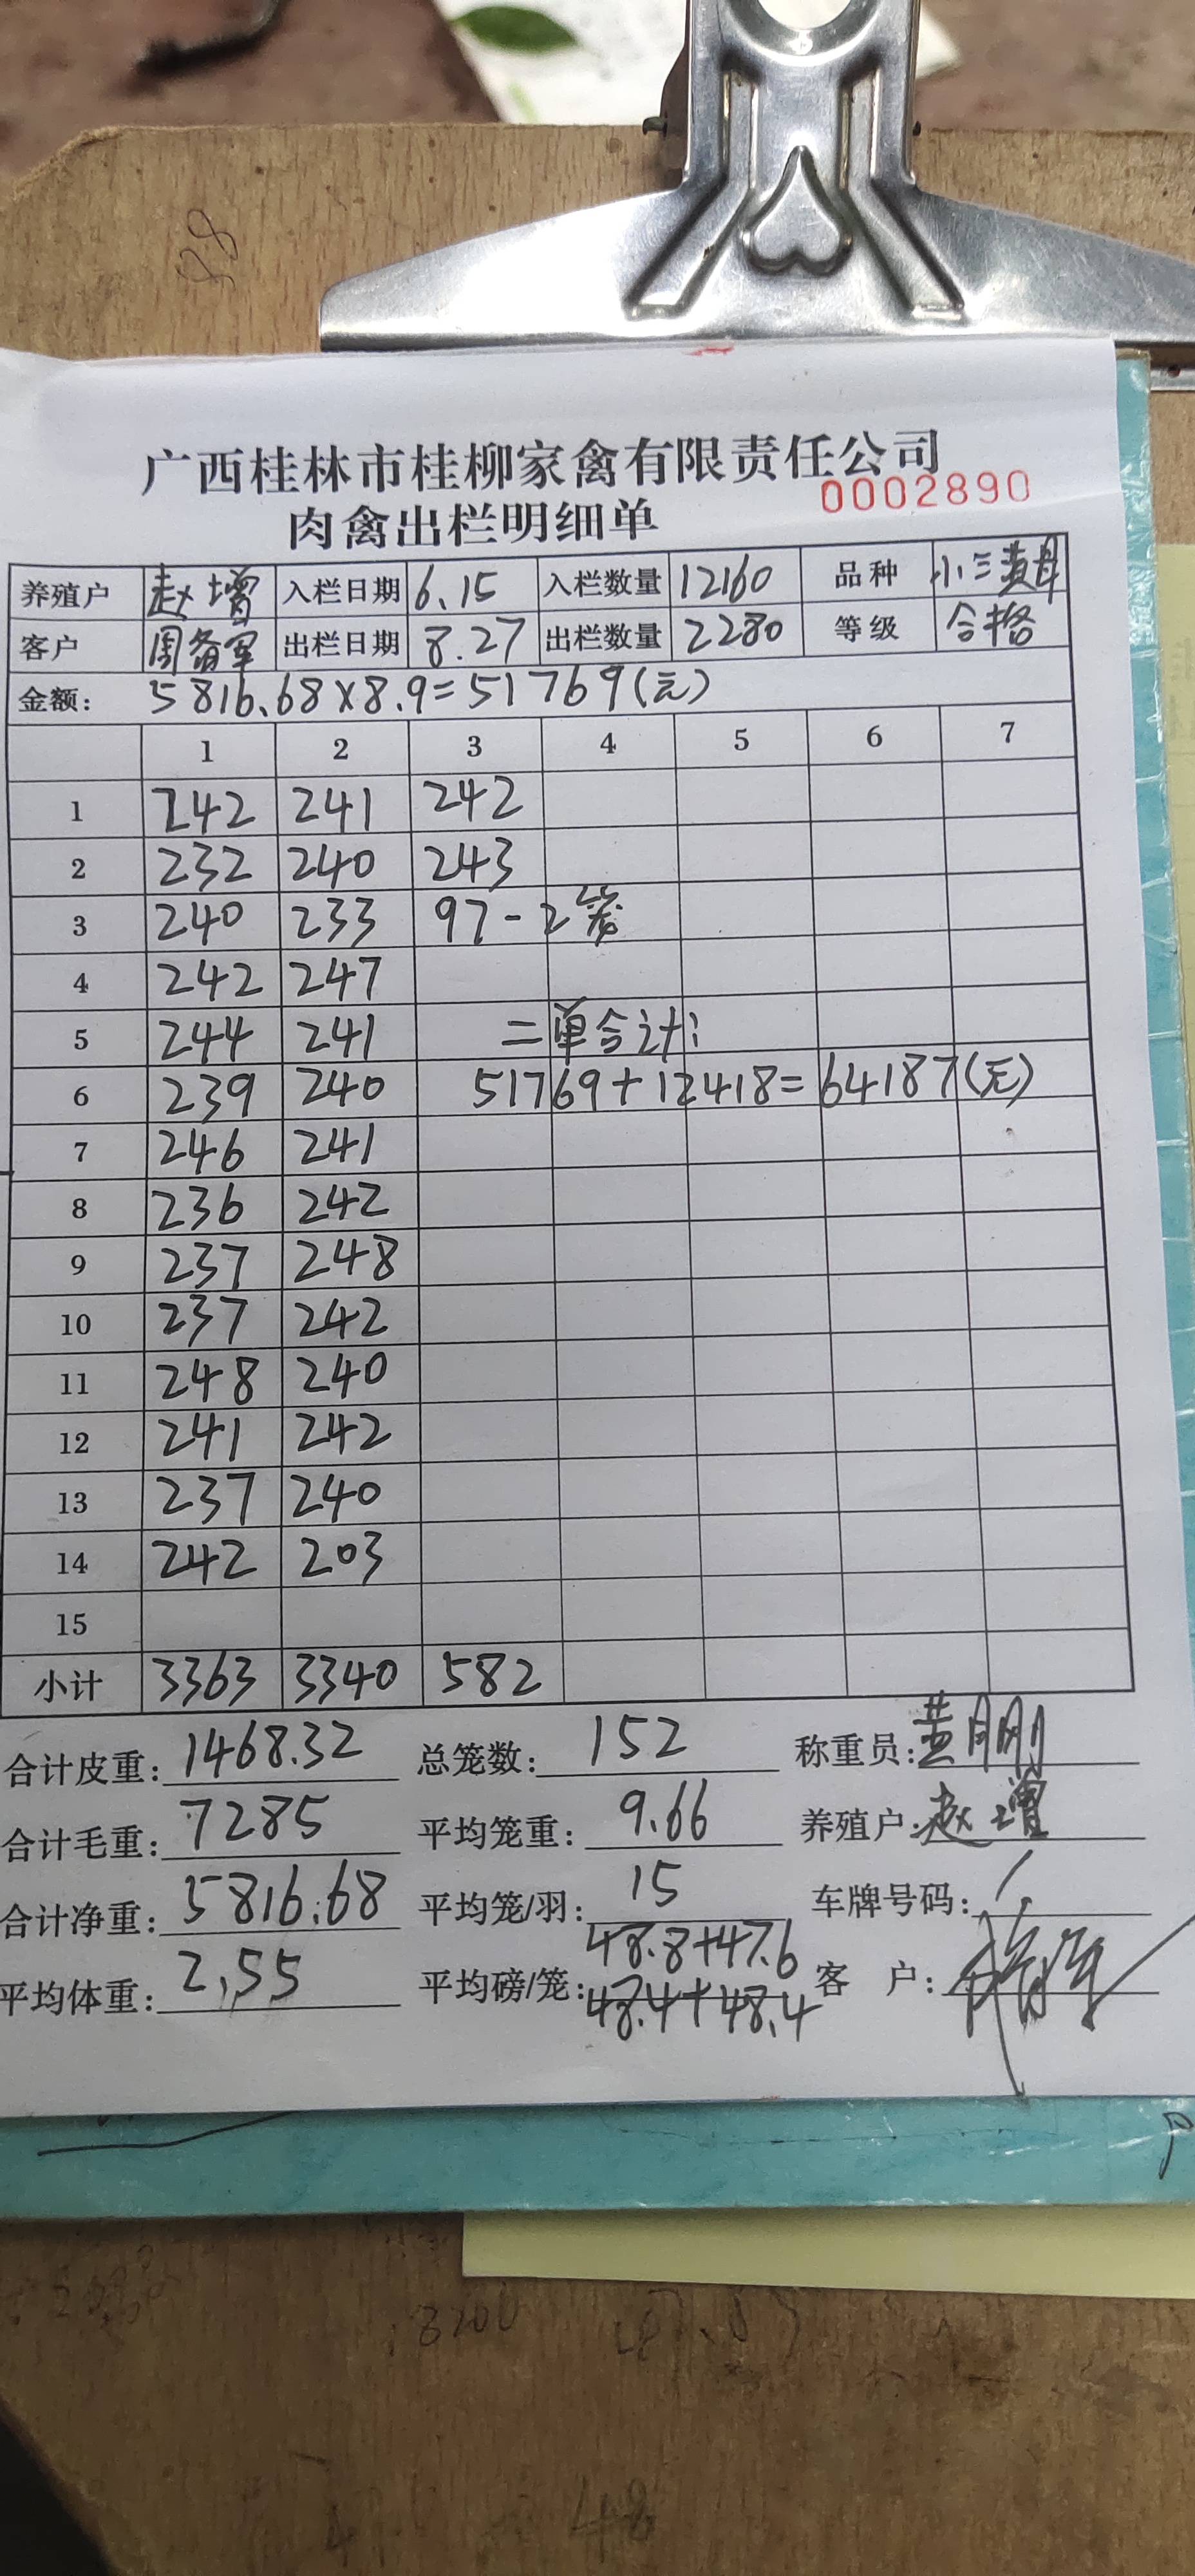 广西桂林市桂柳家禽有限责任公司
肉禽出栏明细单 0002890
养殖户 赵增 入栏日期 6.15 入栏数量 12160 品种 小三黄母
客户 周备军 出栏日期 8.27 出栏数量 2280 等级 合格
金额: 5816.68×8.9=51769(元)
1 2 3 4 5 6 7
1 242 241 242
2 232 240 243
3 240 233 97-2笼
4 242 247
5 244 241 二单合计:
6 239 240 51769+12418=64187(元)
7 246 241
8 236 242
9 237 248
10 237 242
11 248 240
12 241 242
13 237 240
14 242 203
15
小计 3363 3340 582
合计皮重: 1468.32 总笼数: 152 称重员: 黄刚
合计毛重: 7285 平均笼重: 9.66 养殖户: 赵增
合计净重: 5816.68 平均笼/羽: 15 车牌号码: /
平均体重: 2.55 平均磅/笼: 48.8+47.6 客 户:
48.4+48.4